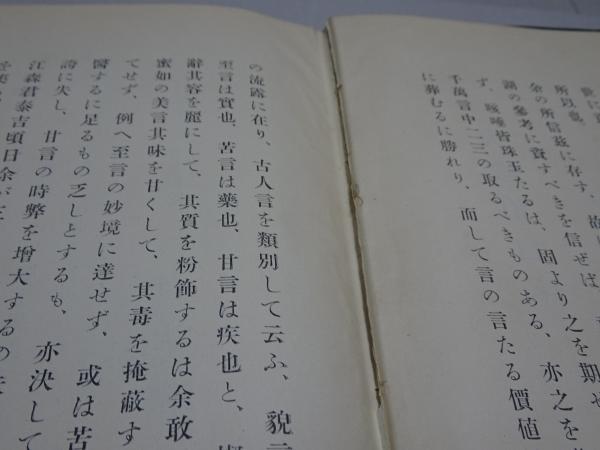 所以也、
余の所信茲に存す、故に
湖の參考に資すべきを信ぜば
ず、咳唾皆珠玉たるは、固より之を期せ
千萬言中二三の取るべきものある、亦之を
に葬むるに勝れり、而して言の言たる價値
の流露に在り、古人言を類別して云ふ、貌言
至言は實也、苦言は藥也、甘言は疾也と、
辭其容を麗にして、其質を粉飾するは余敢
蜜如の美言其味を甘くして、其毒を掩蔽す
てせず、例へ至言の妙境に達せず、或は苦
醫するに足るもの乏しとするも、亦決して
誇に失し、甘言の時弊を增大するの
江森君泰吉頃日余が